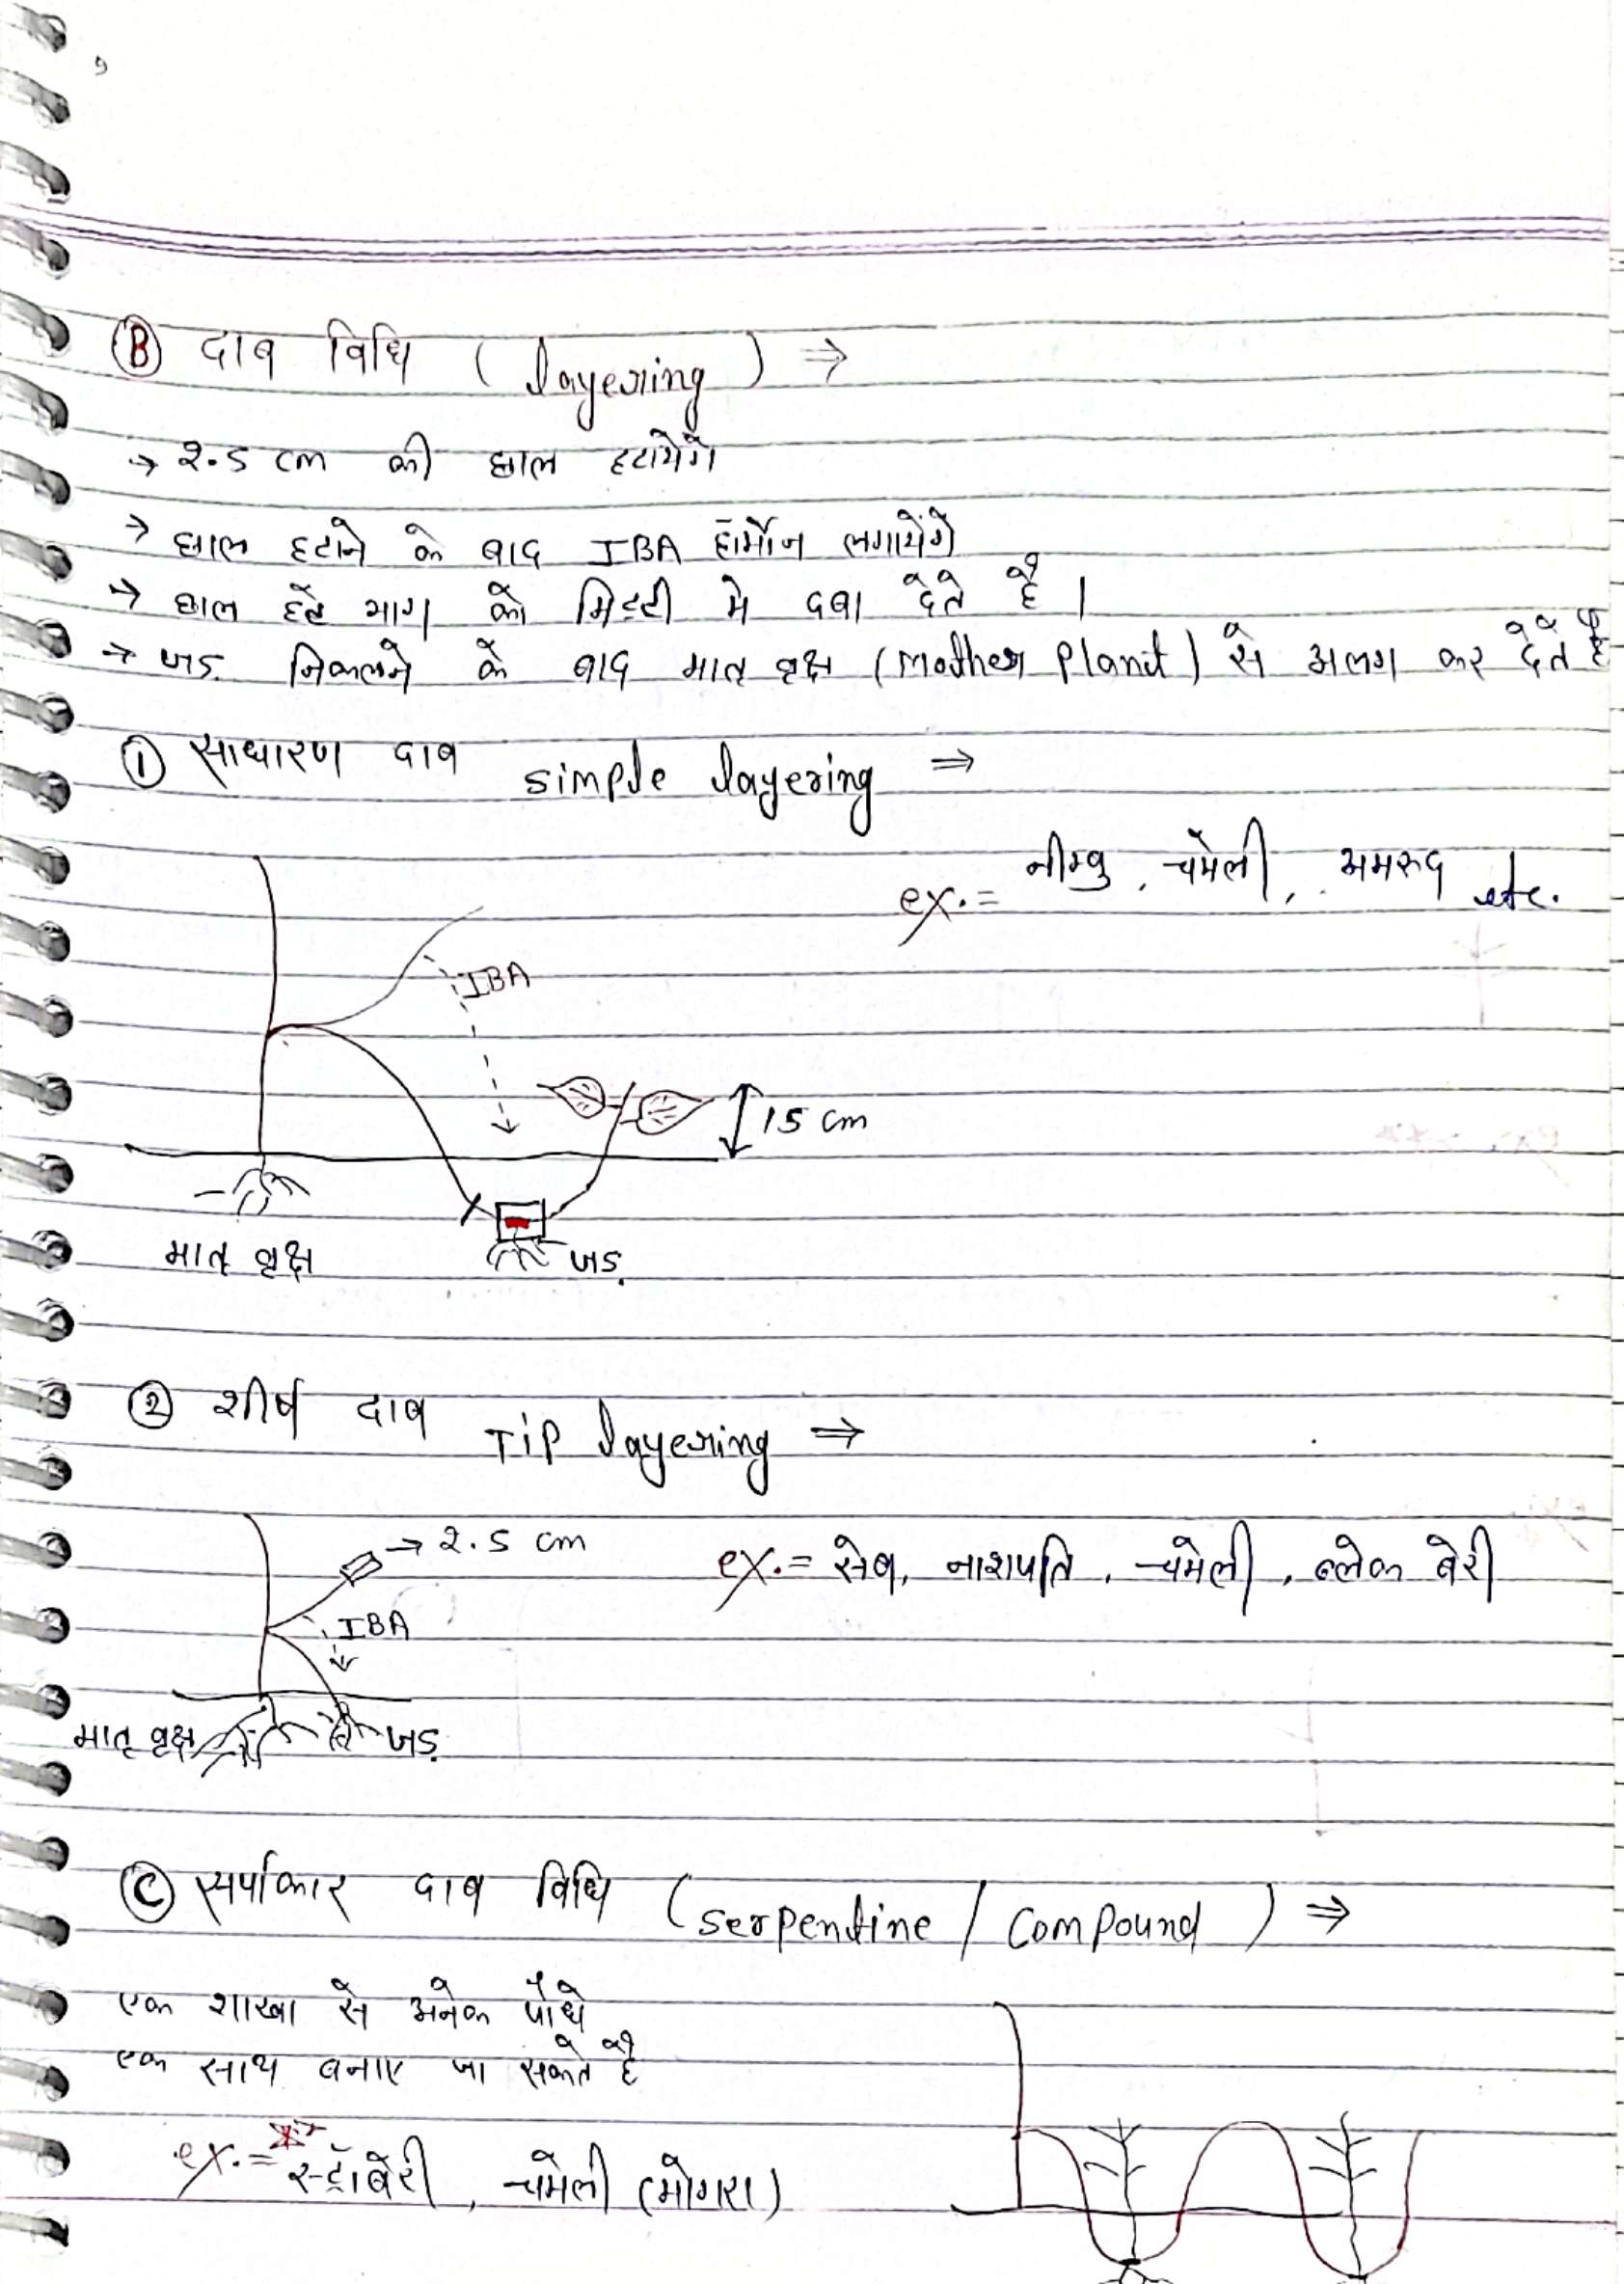 Ⓑ दाब विधि ( layering ) ⇒
→ २.5 cm की छाल हटायेगें
→ छाल हटाने के बाद IBA हॉर्मोन लगायेंगे
→ छाल हटे भाग को मिट्टी मे दबा देते है ।
→ जड़ निकलने के बाद मातृ वृक्ष (Mother Plant) से अलग कर देते है
① साधारण दाब simple layering ⇒
ex.= नीम्बु, चमेली, अमरुद etc.
IBA
15 cm
मातृ वृक्ष
जड़
② शीर्ष दाब Tip layering ⇒
→ २.5 cm
ex.= सेब, नाशपति, चमेली, ब्लेक बेरी
IBA
मातृ वृक्ष
जड़
Ⓒ सर्पाकार दाब विधि (serpentine / Compound ) ⇒
एक शाखा से अनेक पौधे
एक साथ बनाए जा सकते है
ex.= स्ट्रॉबेरी, चमेली (मोगरा)